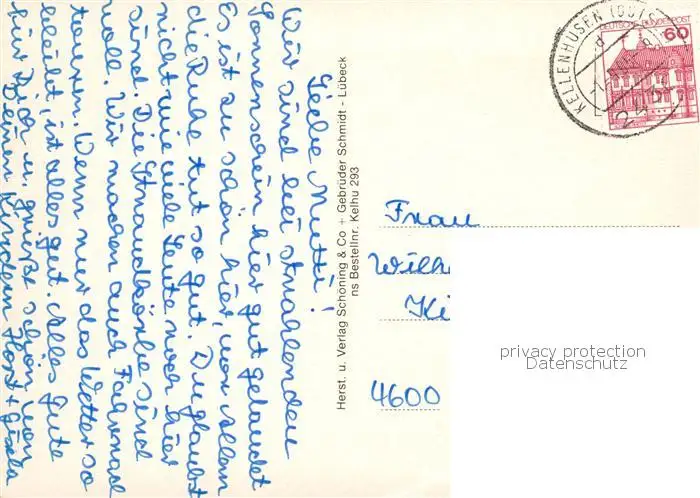 Liebe Mutti!
Wir sind bei strahlenden
Sonnenschein hier gut gelandet
Es ist zu schön hier, vor allem
die Ruhe tut so gut. Du glaubst
nicht wie viele Leute noch hier
sind. Die Strandkörbe sind
voll. Wir machen auch Fahrrad
touren. Wenn nur das Wetter so
bleibt, ist alles gut. Alles Gute
für Dich u. grüße schön von
Deinen Kindern Horst + Gisela
Herst. u. Verlag Schöning & Co + Gebrüder Schmidt - Lübeck
ns Bestellnr. Kelhu 293
KELLENHUSEN
DEUTSCHE BUNDESPOST
60
Frau
Wilh
Ki
4600
privacy protection
Datenschutz